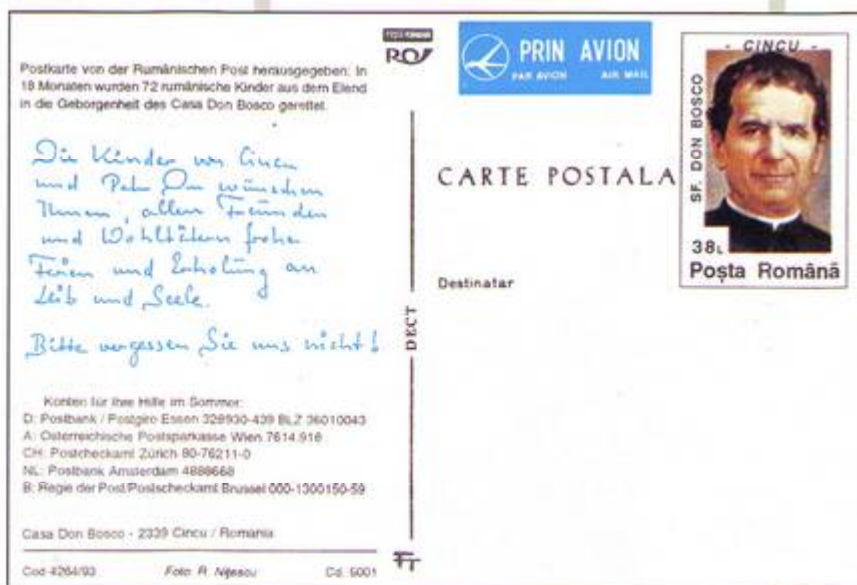 Postkarte von der Rumänischen Post herausgegeben: In
18 Monaten wurden 72 rumänische Kinder aus dem Elend
in die Geborgenheit des Casa Don Bosco gerettet.
Die Kinder von Cincu
und Pater Don wünschen
Ihnen, allen Freunden
und Wohltätern frohe
Ferien und Erholung an
Leib und Seele.
Bitte vergessen Sie uns nicht!
Konten für Ihre Hilfe im Sommer:
D: Postbank / Postgiro Essen 328930-439 BLZ 36010043
A: Österreichische Postsparkasse Wien 7614.918
CH: Postcheckamt Zürich 80-76211-0
NL: Postbank Amsterdam 4888668
B: Regie der Post/Postscheckamt Brussel 000-1300150-59
Casa Don Bosco - 2339 Cincu / Romania
Cod 4264/93 Foto: R. Cd. 5001
DECT
PRIN AVION
PAR AVION AIR MAIL
- CINCU -
SF. DON BOSCO
38L
Poșta Română
CARTE POSTALA
Destinatar